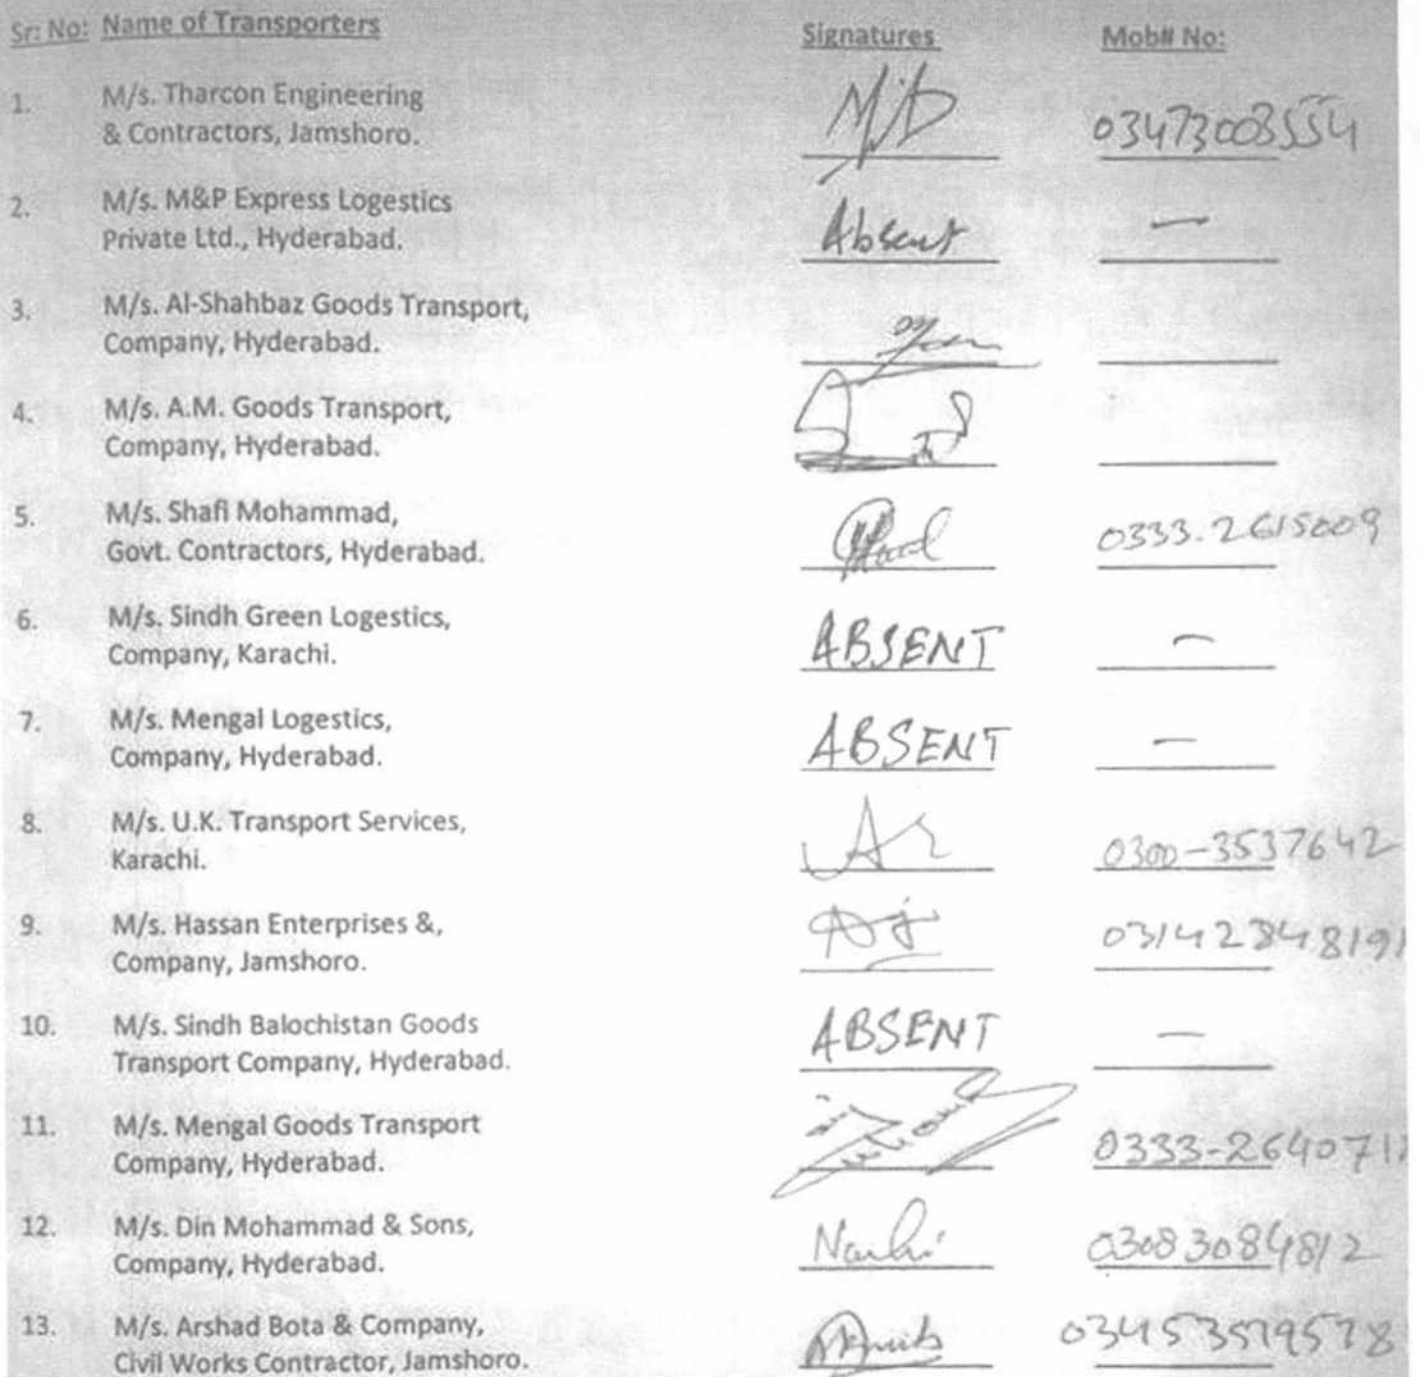 Sr: No: Name of Transporters Signatures Mob# No:
1. M/s. Tharcon Engineering
& Contractors, Jamshoro. 03473003554
2. M/s. M&P Express Logestics
Private Ltd., Hyderabad. Absent —
3. M/s. Al-Shahbaz Goods Transport,
Company, Hyderabad.
4. M/s. A.M. Goods Transport,
Company, Hyderabad.
5. M/s. Shafi Mohammad,
Govt. Contractors, Hyderabad. 0333.2615009
6. M/s. Sindh Green Logestics,
Company, Karachi. ABSENT —
7. M/s. Mengal Logestics,
Company, Hyderabad. ABSENT —
8. M/s. U.K. Transport Services,
Karachi. 0300-3537642
9. M/s. Hassan Enterprises &,
Company, Jamshoro.
10. M/s. Sindh Balochistan Goods
Transport Company, Hyderabad. ABSENT —
11. M/s. Mengal Goods Transport
Company, Hyderabad.
12. M/s. Din Mohammad & Sons,
Company, Hyderabad. 03083084812
13. M/s. Arshad Bota & Company,
Civil Works Contractor, Jamshoro.